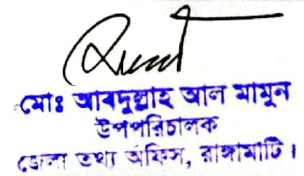 মোঃ আবদুল্লাহ আল মামুন
উপপরিচালক
জেলা তথ্য অফিস, রাঙ্গামাটি।